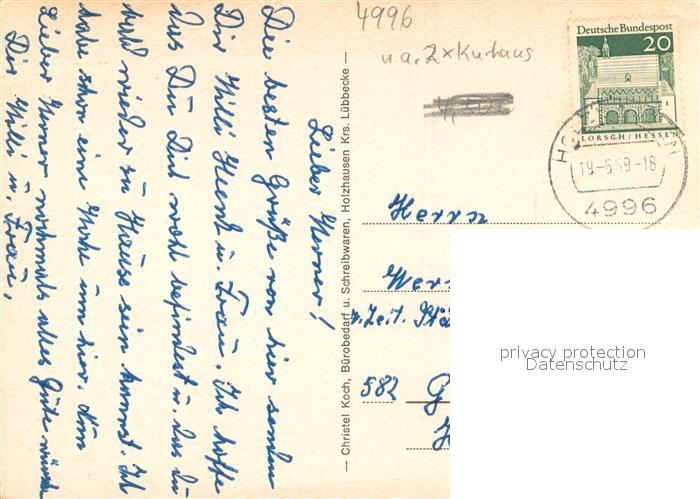 4996
u. a. 2x Kurhaus
Deutsche Bundespost
20
LORSCH / HESSEN
19.-6.69-18
4996
Lieber Werner!
Die besten Grüße von hier senden
Dir Willi u. Frau. Ich hoffe
das Du Dich wohl befindest u. das Du
bald wieder zu Hause sein kannst. Ich
habe schon eine Kur hier. Nun
Lieber Werner nochmals alles Gute wünschen
Dir Willi u. Frau,
— Christel Koch, Bürobedarf u. Schreibwaren, Holzhausen Krs. Lübbecke —
Herrn
Wer
z. Zeit. Stä
582 G
privacy protection
Datenschutz